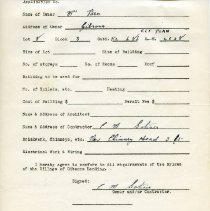 Application No.
Name of Owner Wm
Address of Owner Gibsons
Lot 8 Block 3
Size of Lot Size of Building
No. of storeys No. of Rooms Roof
Building to be used for
No. of Toilets, etc. Heating
Cost of Building $ Permit Fee $
Name & Address of Architect
Name & Address of Contractor C M
Brickwork, Chimneys, etc. Chimney Head 3 ft.
Electrical Work & Wiring
I hereby agree to conform to all requirements of the Bylaws
of the Village of Gibsons Landing.
Signed:
C M
Owner and/or Contractor.